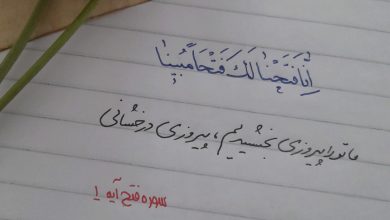 اِنّا فَتَحْنا لَكَ فَتْحاً مُبيناً
ما تو را پیروزی بخشیدیم، پیروزی درخشانی
سوره فتح آیه ۱